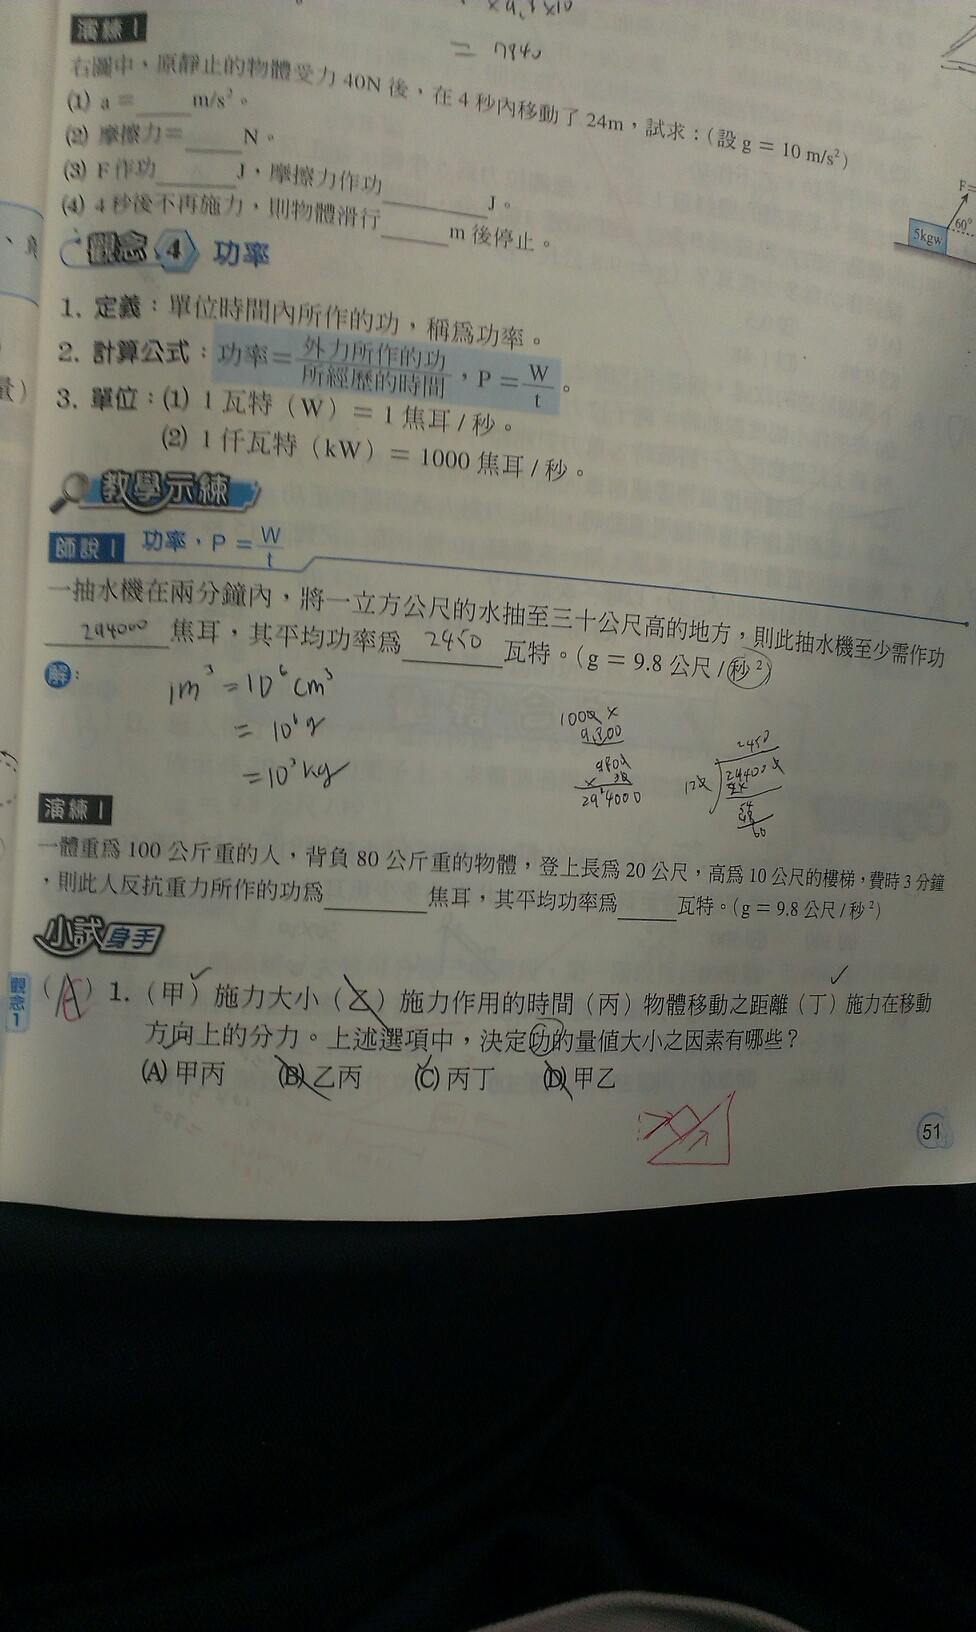 = 7840
演練1
右圖中，原靜止的物體受力40N後，在4秒內移動了24m，試求：(設g = 10 m/s²)
(1) a = ____ m/s²。
(2) 摩擦力 = ____ N。
(3) F作功 ____ J，摩擦力作功 ____ J。
(4) 4秒後不再施力，則物體滑行 ____ m後停止。
F=
60°
5kgw
觀念4 功率
1. 定義：單位時間內所作的功，稱為功率。
2. 計算公式：功率 = 外力所作的功 / 所經歷的時間，P = W / t。
3. 單位：(1) 1瓦特（W）= 1焦耳/秒。
(2) 1仟瓦特（kW）= 1000焦耳/秒。
教學示練
師說1 功率，P = W / t
一抽水機在兩分鐘內，將一立方公尺的水抽至三十公尺高的地方，則此抽水機至少需作功
294000 焦耳，其平均功率為 2450 瓦特。(g = 9.8公尺/秒²)
解：
1m³ = 10⁶ cm³
= 10⁶ g
= 10³ kg
294000
2450
演練1
一體重為100公斤重的人，背負80公斤重的物體，登上長為20公尺，高為10公尺的樓梯，費時3分鐘
，則此人反抗重力所作的功為 ____ 焦耳，其平均功率為 ____ 瓦特。(g = 9.8公尺/秒²)
小試身手
觀念1
( ) 1.（甲）施力大小（乙）施力作用的時間（丙）物體移動之距離（丁）施力在移動
方向上的分力。上述選項中，決定功的量值大小之因素有哪些？
(A) 甲丙 (B) 乙丙 (C) 丙丁 (D) 甲乙
51